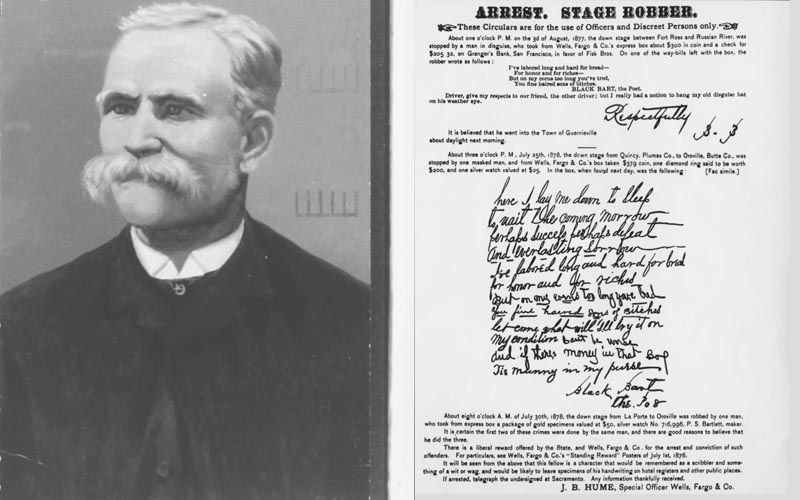 ARREST. STAGE ROBBER.
These Circulars are for the use of Officers and Discreet Persons only.
About one o'clock P. M. on the 3d of August, 1877, the down stage between Fort Ross and Russian River, was
stopped by a man in disguise, who took from Wells, Fargo & Co.'s express box about $300 in coin and a check for
$205 32, on Granger's Bank, San Francisco, in favor of Fisk Bros. On one of the way-bills left with the box, the
robber wrote as follows:
I've labored long and hard for bread—
For honor and for riches—
But on my corns too long you've trod,
You fine haired sons of bitches.
BLACK BART, the Poet.
Driver, give my respects to our friend, the other driver; but I really had a notion to hang my old disguise hat
on his weather eye.
Respectfully B. B
It is believed that he went into the Town of Guernieville
about daylight next morning.
About three o'clock P. M., July 25th, 1878, the down stage from Quincy, Plumas Co., to Oroville, Butte Co., was
stopped by one masked man, and from Wells, Fargo & Co.'s box taken $379 coin, one diamond ring said to be worth
$200, and one silver watch valued at $25. In the box, when found next day, was the following: [Fac simile.]
here I lay me down to Sleep
to wait the coming morrow
perhaps success perhaps defeat
And everlasting Sorrow
I've labored long and hard for bred
for honor and for riches
But on my corns too long yove tred
You fine haired sons of Bitches
let come what will I'll try it on
My condition cant be worse
and if theres money in that Box
Tis munny in my purse
Black Bart
the Po8
About eight o'clock A. M. of July 30th, 1878, the down stage from La Porte to Oroville was robbed by one man,
who took from express box a package of gold specimens valued at $50, silver watch No. 716,996, P. S. Bartlett, maker.
It is certain the first two of these crimes were done by the same man, and there are good reasons to believe that
he did the three.
There is a liberal reward offered by the State, and Wells, Fargo & Co. for the arrest and conviction of such
offenders. For particulars, see Wells, Fargo & Co.'s "Standing Reward" Posters of July 1st, 1876.
It will be seen from the above that this fellow is a character that would be remembered as a scribbler and some-
thing of a wit or wag, and would be likely to leave specimens of his handwriting on hotel registers and other public places.
If arrested, telegraph the undersigned at Sacramento. Any information thankfully received.
J. B. HUME, Special Officer Wells, Fargo & Co.